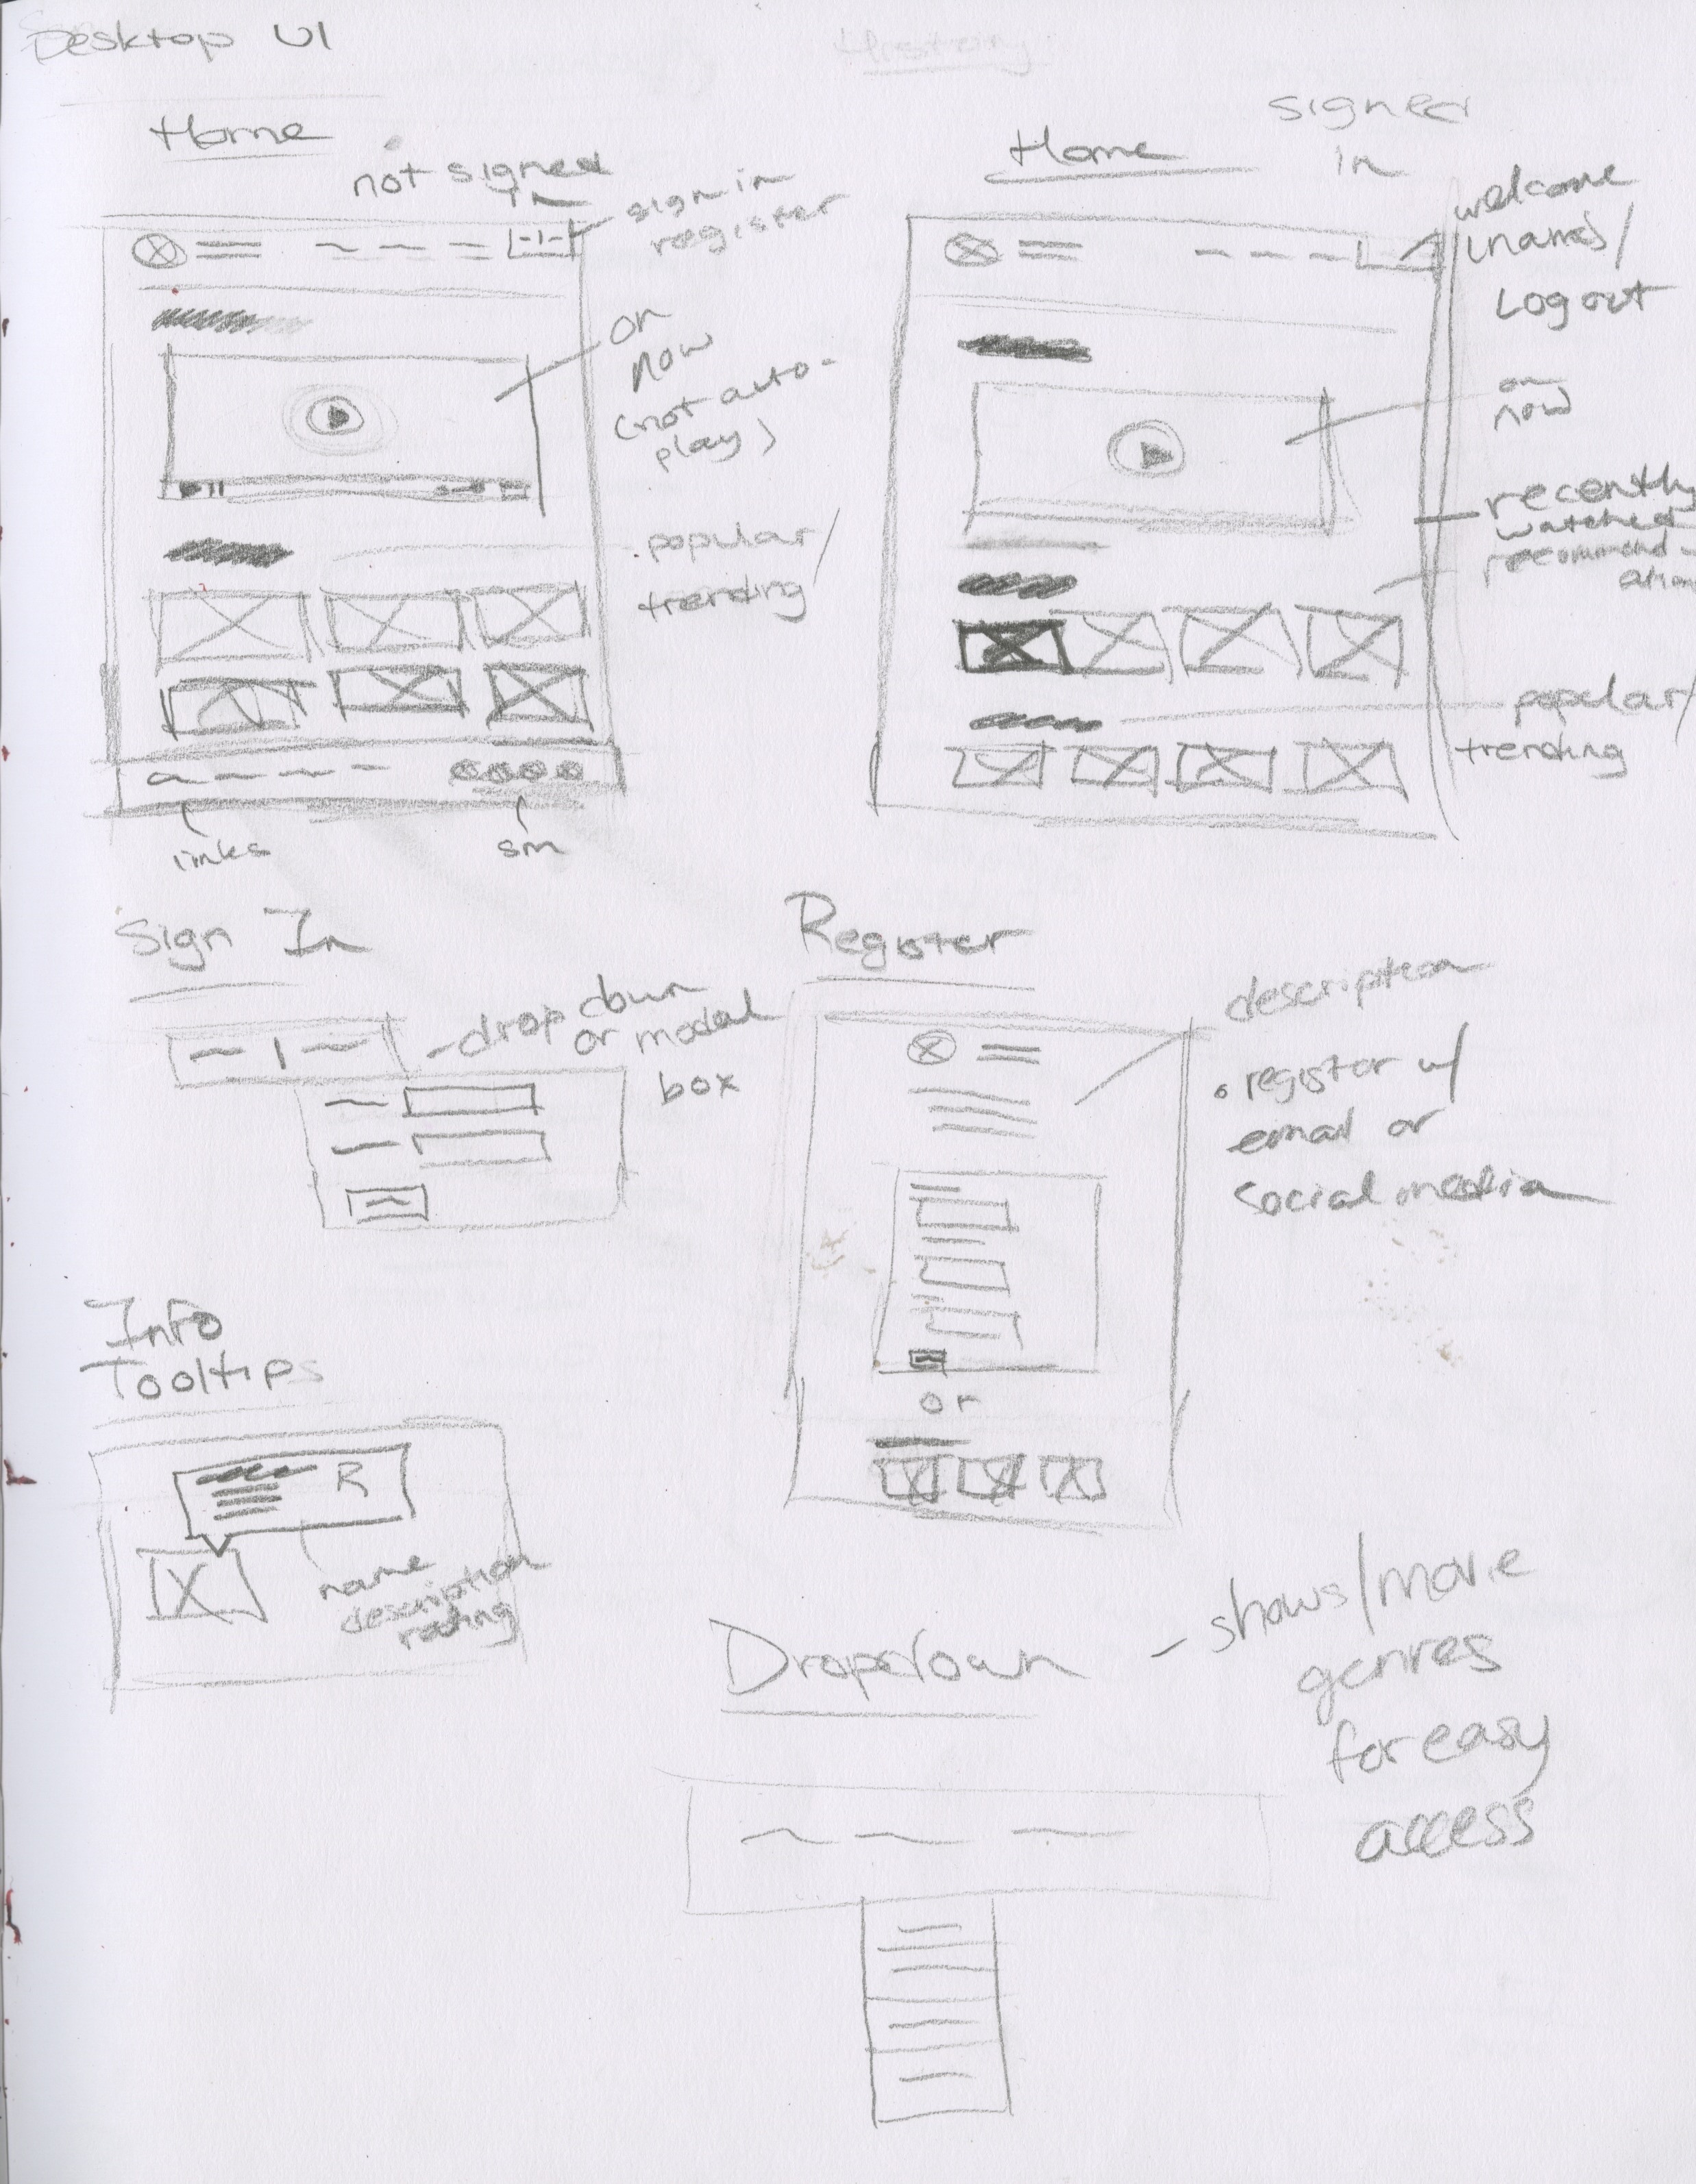 Desktop UI
Home
not signed
in
sign in
register
on
now
(not auto-
play)
popular/
trending/
links
sm
Home
signed
in
welcome
(name)/
Logout
on
now
recently
watched
recommend-
ation
popular/
trending
Sign In
-drop down
or modal
box
Register
description
• register w/
email or
social media
or
Info
Tooltips
R
name
description
rating
Dropdown
- shows/movie
genres
for easy
access